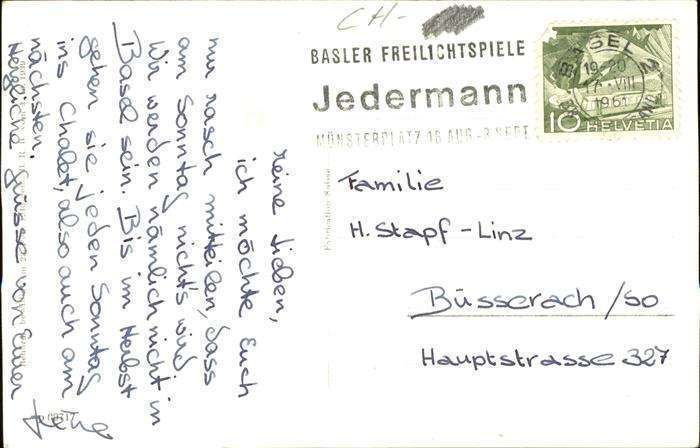 CH-
BASLER FREILICHTSPIELE
Jedermann
MÜNSTERPLATZ 18 AUG - 3 SEPT
BASEL
19-20
VIII
1961
10 HELVETIA
Familie
H. Stapf-Linz
Büsserach/SO
Hauptstrasse 327
Meine Lieben,
ich möchte Euch
nur rasch mitteilen, dass
am Sonntag nichts wird
Wir werden nämlich nicht in
Basel sein. Bis im Herbst
gehen sie jeden Sonntag
ins Chalet, also auch am
nächsten.
Herzliche Grüsse von Eurer